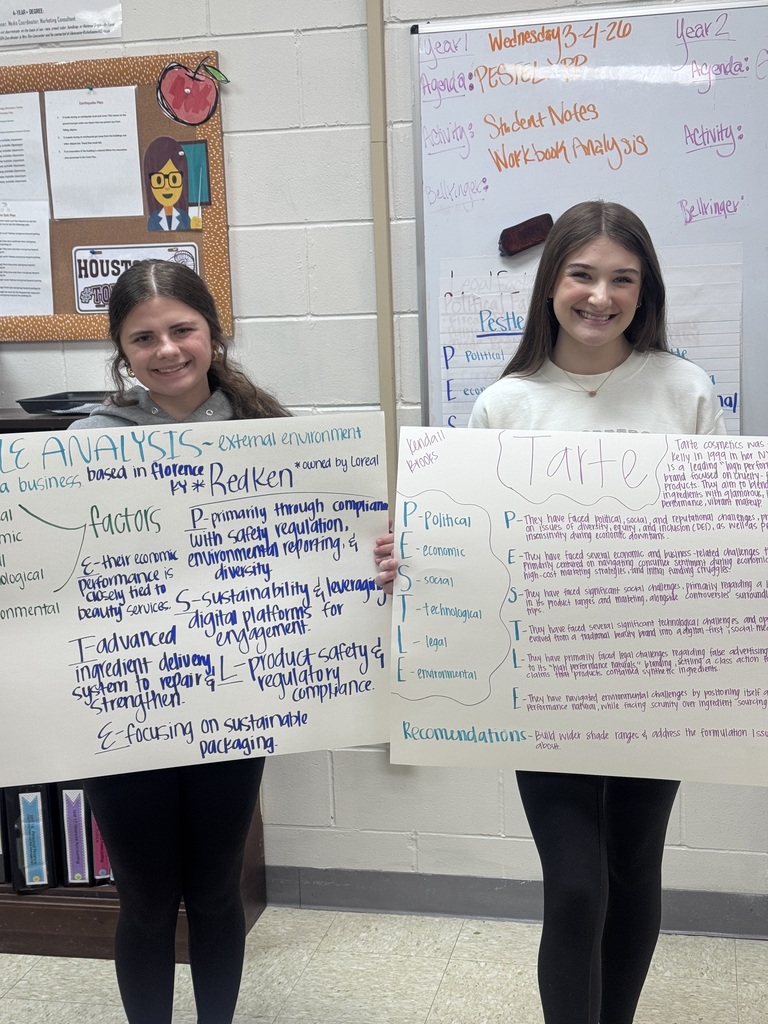 4-YEAR+ DEGREE:
Earthquake Plan
HOUST
#TO
Year 1
Wednesday 3-4-26
Year 2
Agenda:
PESTEL YPP
Agenda:
Activity:
Student Notes
Workbook Analysis
Activity:
Bellringer:
Bellringer:
Legal Fact
Political Fa
Pestle
P Political
E econ
S
LE ANALYSIS~ external environment
a business based in florence
KY * Redken *owned by Loreal
factors
ological
onmental
P-primarily through complian
with safety regulation,
environmental reporting, &
diversity.
E-their economic
performance is
closely tied to
beauty services.
S-sustainability & leveraging
digital platforms for
engagement.
T-advanced
ingredient delivery
system to repair &
strengthen.
L-product safety &
regulatory
compliance.
E-focusing on sustainable
packaging.
Kendall
Brooks
Tarte
Tarte cosmetics was
Kelly in 1999 in her NY
is a leading "high perform
brand focused on cruelty-f
products. They aim to blend
ingredients with glamorous, h
performance, vibrant makeup
P-Political
E-economic
S-social
T-technological
L-legal
E-environmental
P-They have faced political, social, and reputational challenges, pr
on issues of diversity, equity, and inclusion (DEI), as well as p
insensitivity during economic downturns.
E-They have faced several economic and business-related challenges t
primarily centered on navigating consumer sentiment during economic
high-cost marketing strategies, and initial funding struggles.
S-They have faced significant social challenges, primarily regarding a l
in its product ranges and marketing, alongside controversies surroundi
trips.
T-They have faced several significant technological challenges and op
evolved from a traditional beauty brand into a digital-first, social-me
L-They have primarily faced legal challenges regarding false advertising
to its "high performance naturals" branding, settling a class action f
claims that products contained synthetic ingredients.
E-They have navigated environmental challenges by positioning itself a
performance natural, while facing scrutiny over ingredient sourcing
Recomendations- Build wider shade ranges & address the formulation issu
about.